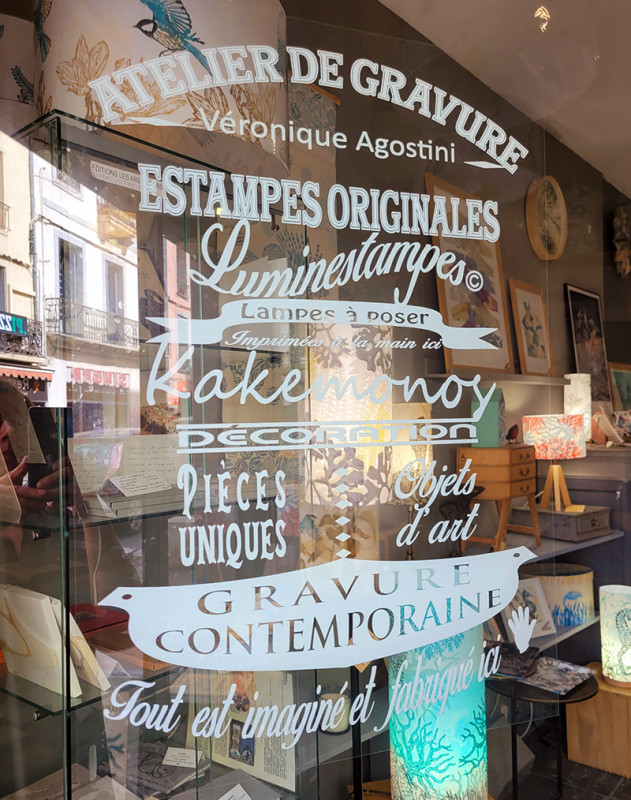 ATELIER DE GRAVURE
Véronique Agostini
ESTAMPES ORIGINALES
Luminestampes©
Lampes à poser
Imprimées à la main ici
Kakemonos
DÉCORATION
PIÈCES
UNIQUES
Objets
d'art
GRAVURE
CONTEMPORAINE
Tout est imaginé et fabriqué ici